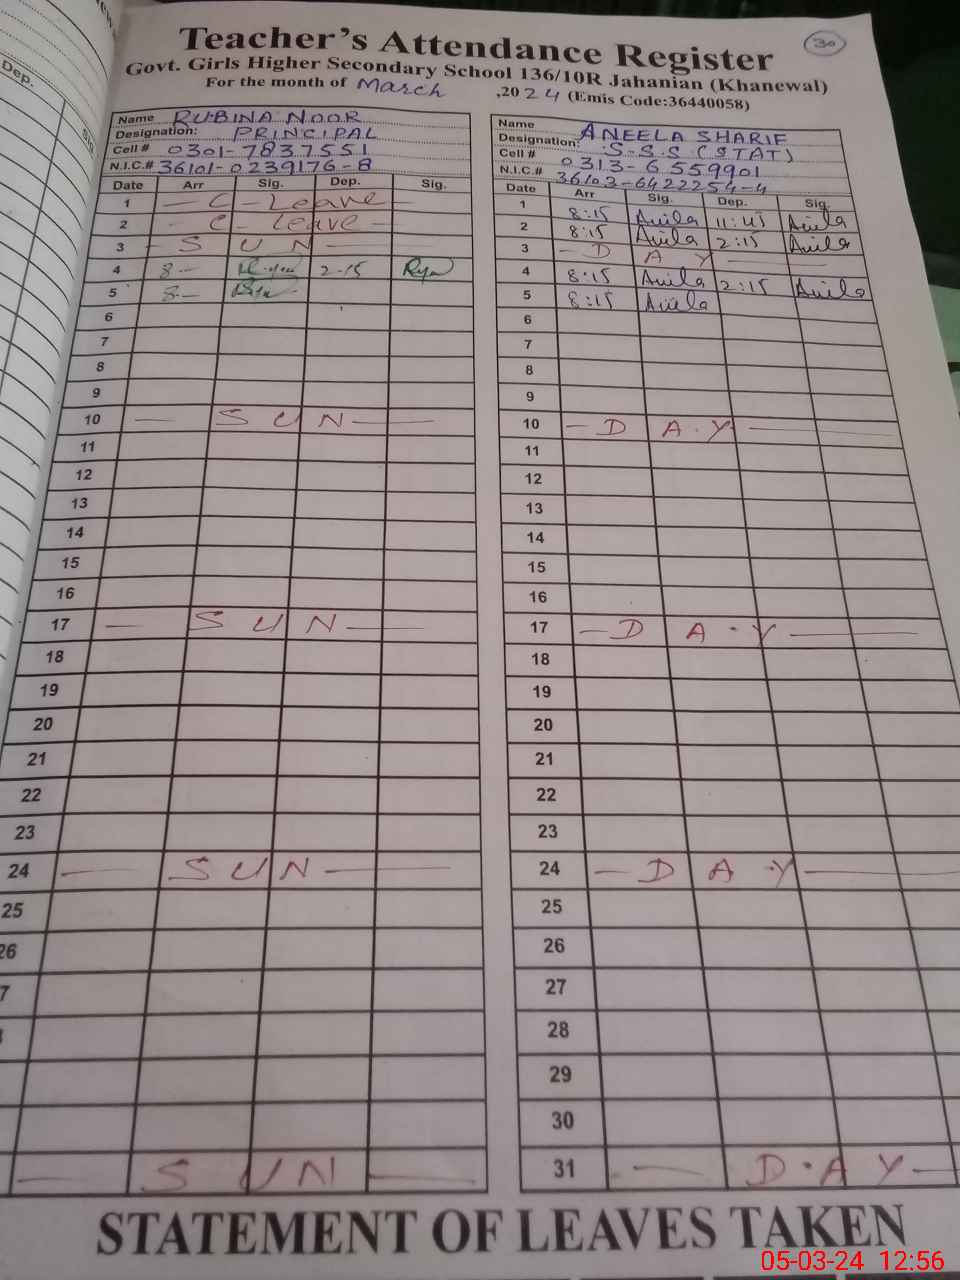 Teacher's Attendance Register
30
Govt. Girls Higher Secondary School 136/10R Jahanian (Khanewal)
For the month of March ,2024 (Emis Code:36440058)
Name RUBINA NOOR
Designation: PRINCIPAL
Cell # 0301-7837551
N.I.C.# 36101-0239176-8
Date Arr Sig. Dep. Sig.
1 - C - Leave -
2 - C - Leave -
3 - S U N -
4 8 - 2-15
5 8 -
6
7
8
9
10 - S U N -
11
12
13
14
15
16
17 - S U N -
18
19
20
21
22
23
24 - S U N -
25
26
7
- S U N -
Name ANEELA SHARIF
Designation: S.S.S (STAT)
Cell # 0313-6559901
N.I.C.# 36103-6422254-4
Date Arr Sig. Dep. Sig.
1 8:15 Anila 11:45 Anila
2 8:15 Anila 2:15 Anila
3 - D A Y -
4 8:15 Anila 2:15 Anila
5 8:15 Anila
6
7
8
9
10 - D A.Y -
11
12
13
14
15
16
17 - D A.Y -
18
19
20
21
22
23
24 - D A.Y -
25
26
27
28
29
30
31 - D.A Y -
STATEMENT OF LEAVES TAKEN
05-03-24 12:56
Dep.